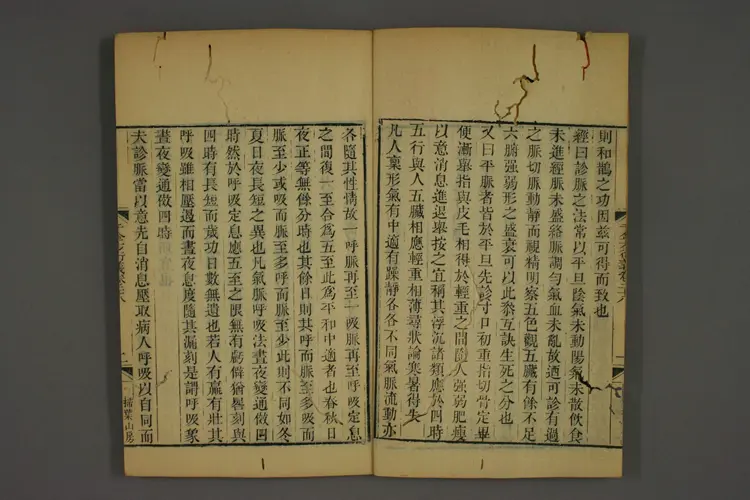 則和鵲之功因茲可得而致也
經曰診脈之法常以平旦陰氣未動陽氣未散飲食
未進經脈未盛絡脈調勻氣血未亂故適可診有過
之脈切脈動靜而視精明察五色觀五臟有餘不足
六腑強弱形之盛衰可以此叅互訣生死之分也
又曰平脈者皆於平旦先診寸口初重指切骨定畢
便漸舉指與皮毛相得於輕重之間隨人強弱肥瘦
以意消息進退舉按之宜稱其浮沉諸類應於四時
五行與人五臟相應輕重相薄尋狀論寒暑得失
凡人稟形氣有中適有躁靜各各不同氣脈流動亦
各隨其性情故一呼脈再至一吸脈再至呼吸定息
之間復一至合為五至此為平和中適者也春秋日
夜正等無餘分時也其餘日則其呼而脈至多吸而
脈至少或吸而脈至多呼而脈至少此則不同如冬
夏日夜長短之異也凡氣脈呼吸法晝夜變通做四
時然於呼吸定息應五至之限無有虧僻猶晷刻與
四時有長短而歲功日數無遺也若人有羸有壯其
呼吸雖相壓過而晝夜息度隨其漏刻是謂呼吸象
晝夜變通做四時
夫診脈當以意先自消息壓取病人呼吸以自同而
二
掃葉山房